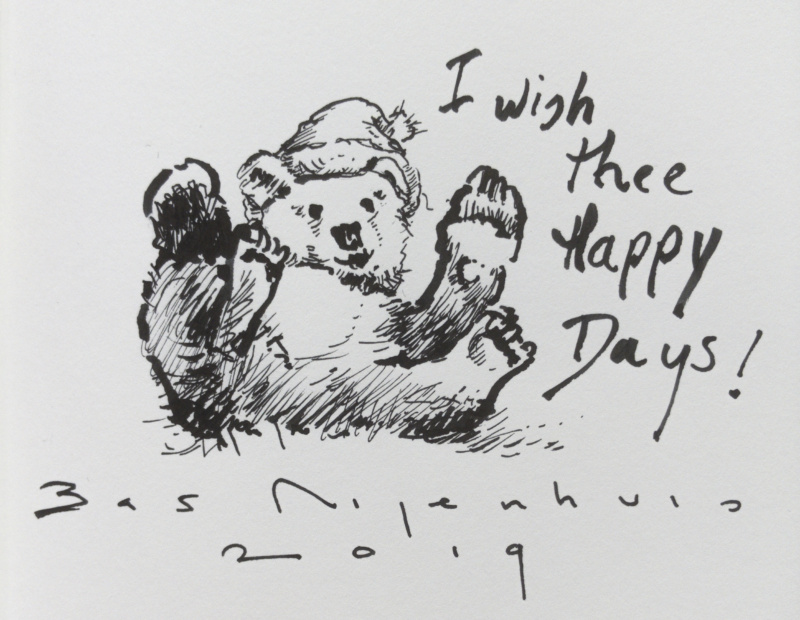 I wish
thee
Happy
Days!
Bas Nijenhuis
2019